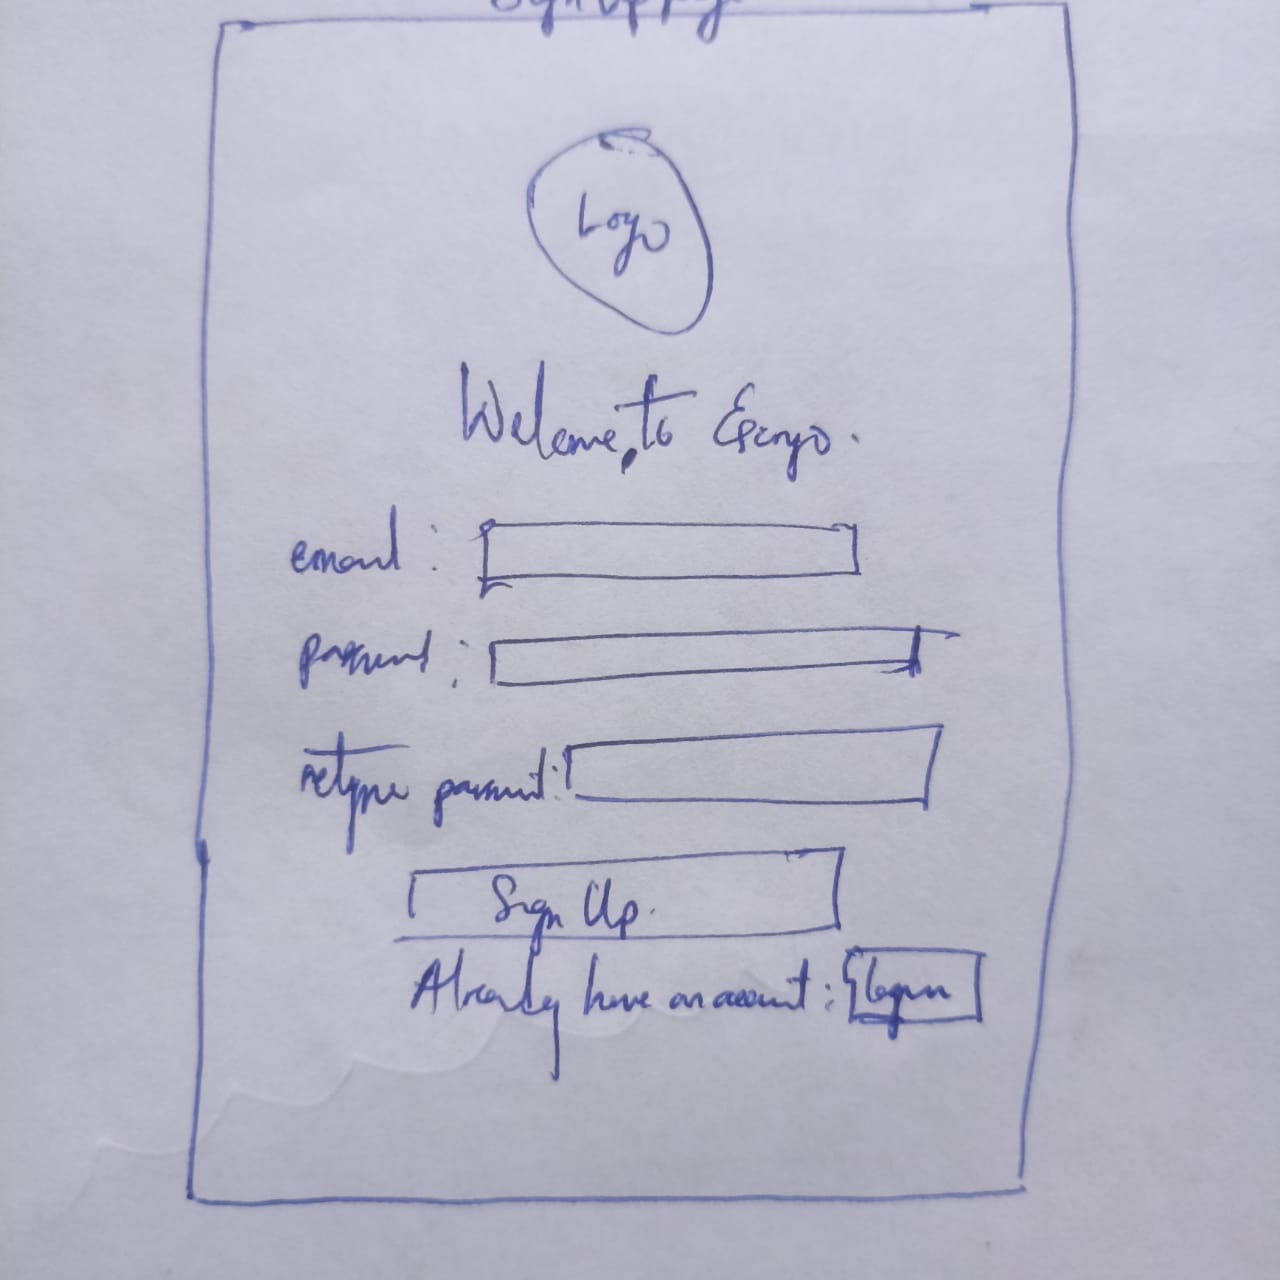 Sign Up page
Logo
Welcome, to Escryo.
email :
password :
retype password :
Sign Up.
Already have an account : login